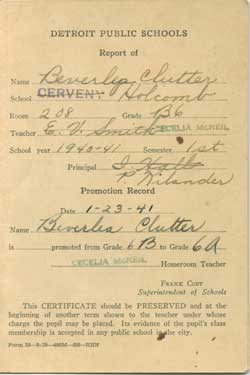 DETROIT PUBLIC SCHOOLS
Report of
Name Beverlea Clutter
School CERVENY Holcomb
Room 208 Grade B6
Teacher E. V. Smith CECELIA McNEIL
School year 1940-41 Semester 1st
Principal I. Hall
P. Nilander
Promotion Record
Date 1-23-41
Name Beverlea Clutter
is promoted from Grade 6B to Grade 6A
CECELIA McNEIL Homeroom Teacher
FRANK CODY
Superintendent of Schools
This CERTIFICATE should be PRESERVED and at the
beginning of another term shown to the teacher under whose
charge the pupil may be placed. Its evidence of the pupil's class
membership is accepted in any public school in the city.